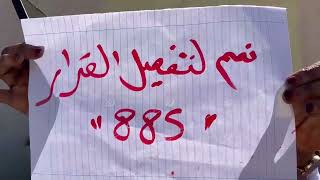 نعم لتفعيل القرار
"885"